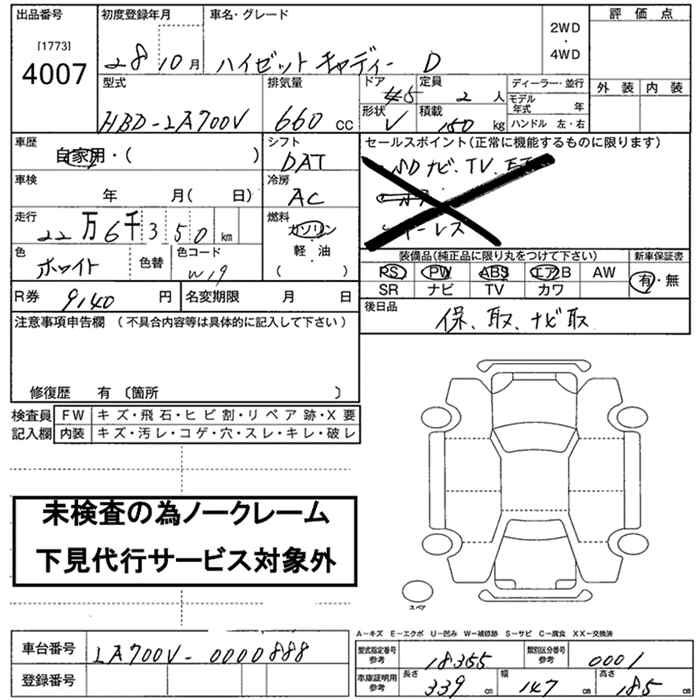 出品番号 初度登録年月 車名・グレード 評価点
[1773]
4007 28 10月 ハイゼットキャディー D 2WD・4WD
型式 排気量 ドア 定員 ディーラー・並行 外装 内装
5 2人 モデル年式 年
HBD-LA700V 660cc 形状 V 積載 150kg ハンドル 左・右
車歴 シフト セールスポイント(正常に機能するものに限ります)
自家用・( ) DAT SDナビ.TV.
車検 冷房
年 月( 日) AC
走行 燃料
22万6千350km ガソリン
色 色替 色コード 軽油 装備品(純正品に限り丸をつけて下さい) 新車保証書
ホワイト W19 ( ) PS PW ABS エアB AW 有・無
SR ナビ TV カワ
R券 9140円 名変期限 月 日 後日品
保、取、ナビ取
注意事項申告欄 (不具合内容等は具体的に記入して下さい)
修復歴 有 〔箇所 〕
検査員 FW キズ・飛石・ヒビ割・リペア跡・X要
記入欄 内装 キズ・汚レ・コゲ・穴・スレ・キレ・破レ
未検査の為ノークレーム
下見代行サービス対象外
スペア
A-キズ E-エクボ U-凹み W-補修跡 S-サビ C-腐食 XX-交換済
車台番号 LA700V-0000888 型式指定番号参考 18355 類別区分番号参考 0001
登録番号 車庫証明用参考 長さ 339cm 幅 147cm 高さ 185cm